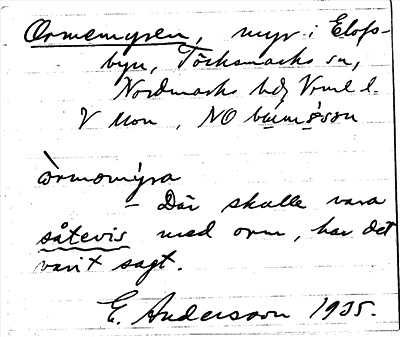 Ormemyren, myr i Elofs-
byn, Töcksmarks sn,
Nordmarks hd, Vrml l.
V Mon, NO
òrmomýra
– Där skulle vara
såtevis med orm, har det
varit sagt.
E. Andersson 1935.